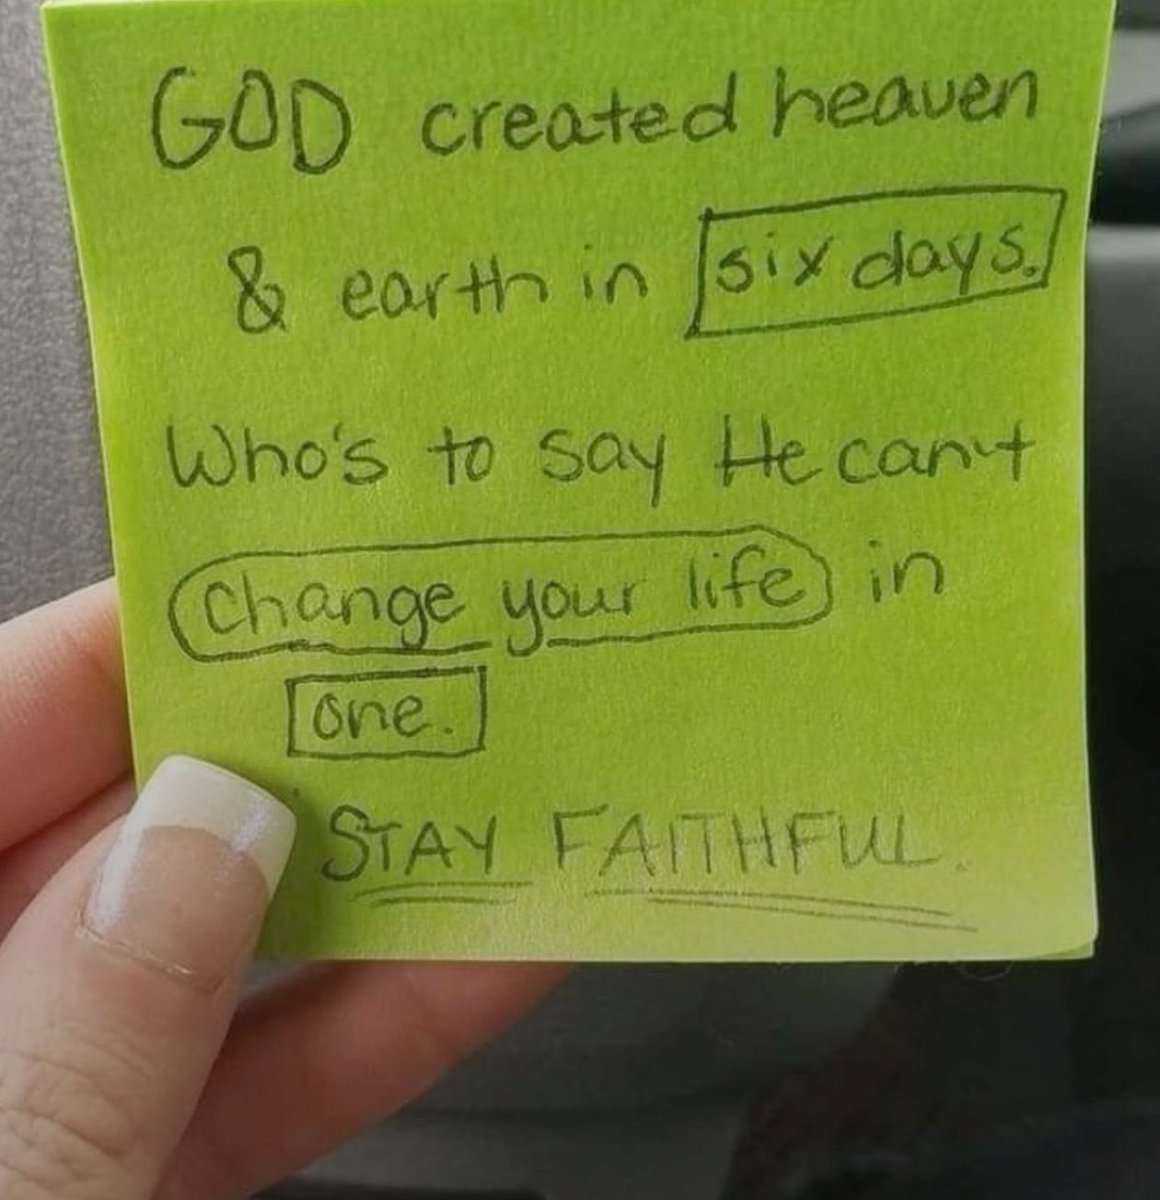 GOD created heaven
& earth in six days.
Who's to say He can't
change your life in
one.
STAY FAITHFUL.